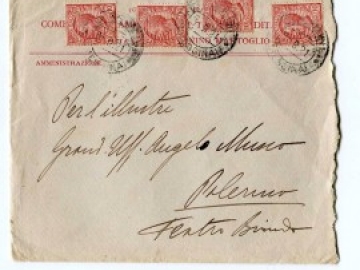 COM
DIT
NINO MARTOGLIO
AMMINISTRAZIONE
Per l'illustre
Grand. Uff. Angelo Musco
Palermo
Teatro Biondo